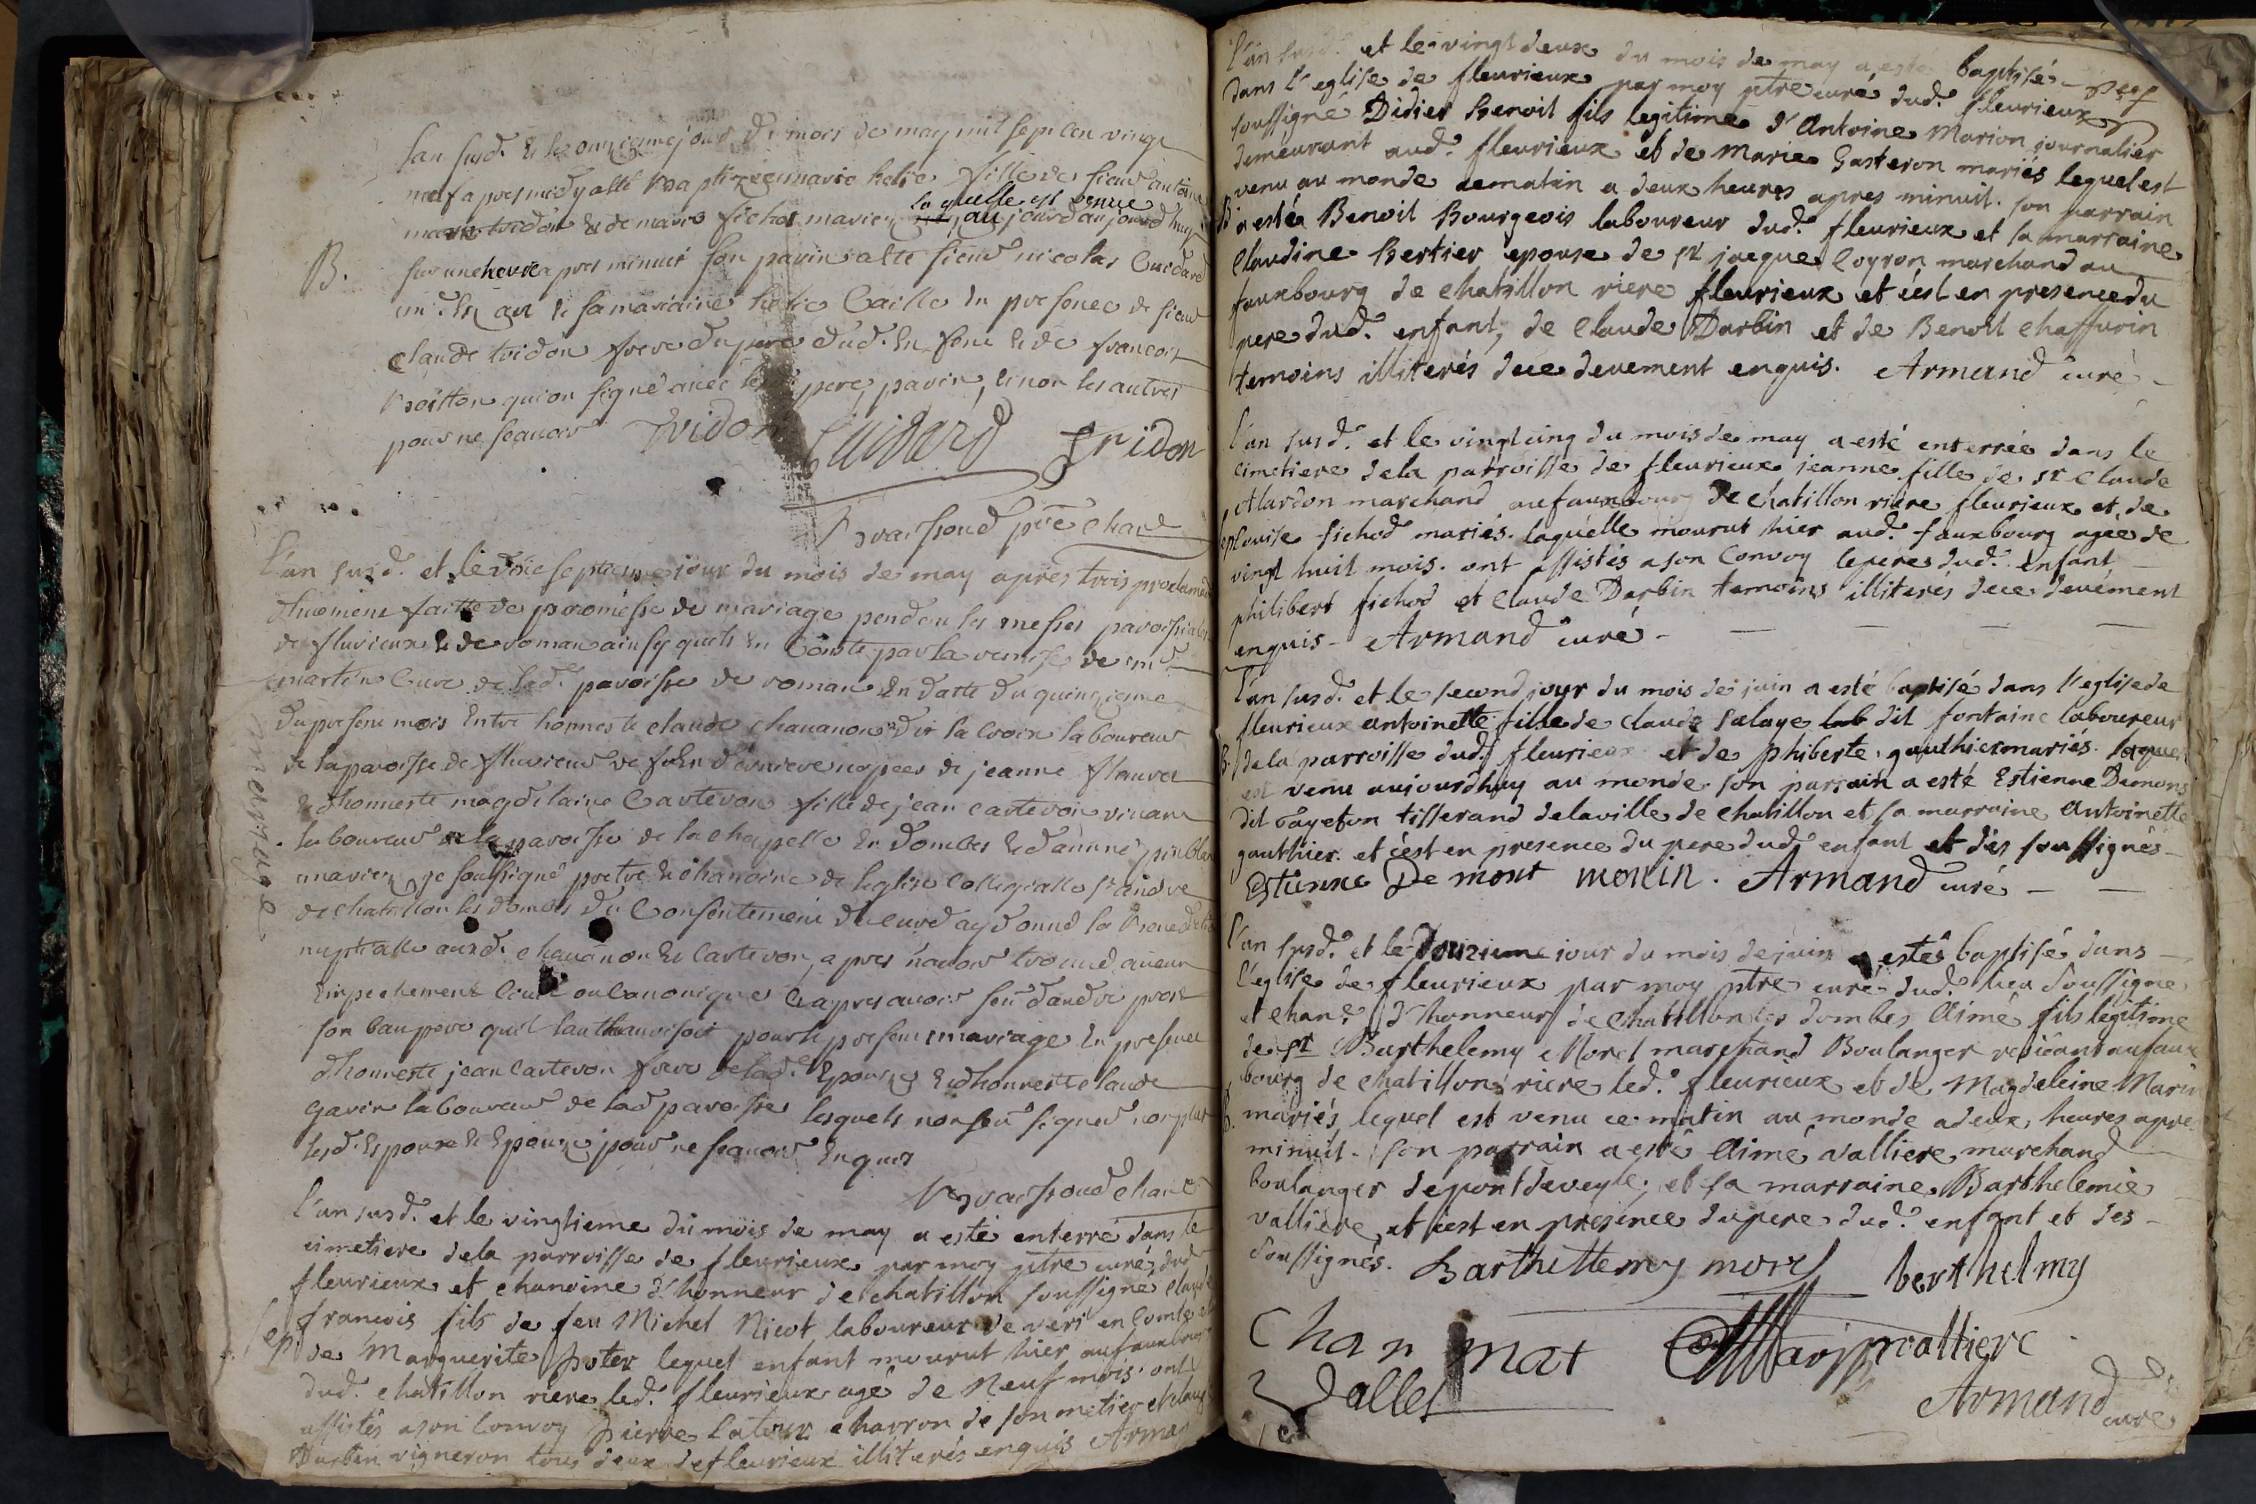 l'an susd. & le onzieme jour du mois de may mil sept cen vingt
neuf apres midy a esté Baptizée marie helie fille de sieur antoine
tridon & de marie fichet mariez laquelle est venue au jourdaujourd huy
B. sur une heure apres minuit son parin a esté sieur nicolas Cuidard
& sa maraine helie Caille en presence de sieur
claude tridon frere du pere dud. en fent & de francois
Boitton qui on signé avec le pere, parin, & non les autres
pour ne scavoir tridon Cuidard tridon
Brossoud ptre chane
l'an susd. et le dixseptieme jour du mois de may apres trois proclama
faitte de promesse de mariage pendeu les messes paroissiales
de fluvieux & de roman ainsy quels en Conste par la remise de mr
martin Cure de lad. paroisse de roman en datte du quinzieme
du present mois Entre honneste claude chauanon dit la Croix laboureur
de la paroisse de fluvieux vef en dernieres nopces de jeanne flauvet
& dhonneste magdelaine Cartevon fille de jean cartevon vivant
laboureur de la paroisse de la chapelle en dombes & danne
mariez, je soussigné pretre & chanoine de leglise Collegialle st andre
mariage
de chatillon les dombes du Consentement du curé ay donné la Benediction
nuptialle ausd. chauanon & Cartevon, apres nauoir trouvé aucun
Empechement Ciuil ou Canonique & apres auoir seu dandre
son beau pere quil lauthaurisoit pour le present mariage en presence
dhonneste jean Cartevon frere de lad. Epouse & dhonneste claude
gavin laboureur de lad paroisse lesquels non seu signer non plus
lesd. Espoux & Epouse pour ne scauoir Enquis
Brossoud chane
l'an susd. et le vingtieme du mois de may a esté enterré dans le
cimetiere dela parroisse de fleurieux par moy ptre curé dud
fleurieux et chanoine d'honneur de chatillon soussigné claude
francois fils de feu Michel Nicot laboureur de veri en Comté et
ep de Marguerite poter lequel enfant mourut hier aufauxbourg
dud. chatillon riere led. fleurieux agé de Neuf mois. ont
assistés ason Convoy pierre Latour charron de son metier et claude
Durbin vigneron tous deux de fleurieux illiterés enquis Arman
l'an susd. et le vingt deux du mois de may a esté baptisé
dans l'eglise de fleurieux par moy ptre curé dud. fleurieux
soussigné Didier Benoit fils legitime d'Antoine Marion journalier
demeurant aud. fleurieux et de Marie Gasteron mariés lequel est
venu au monde cematin a deux heures apres minuit. son parrain
B a esté Benoit Bourgeois laboureur dud. fleurieux et sa marraine
Claudine Bertier epouse de sr jacque Coyron marchand au
fauxbourg de chatillon riere fleurieux et c'est en presence du
pere dud. enfant, de Claude Darbin et de Benoit Chaffurin
temoins illiterés de ce deuement enquis. Armand curé
l'an susd. et le vingtcinq du mois de may a esté enterrée dans le
Cimetiere dela parroisse de fleurieux jeanne fille de sr Claude
Alardon marchand aufauxbourg de chatillon riere fleurieux et de
ep Louise fichod mariés. laquelle mourut hier aud. fauxbourg agée de
vingt huit mois. ont assistés ason Convoy lepere dud. enfant
philibert fichod et Claude Darbin temoins illiterés de ce deuément
enquis - Armand curé -
l'an susd. et le second jour du mois de juin a esté baptisé dans l'eglise de
fleurieux antoinette fille de claude salaye dit fontaine laboureur
B. dela parroisse dud. fleurieux et de phiberte gauthier mariés. laquelle
est venu aujourdhuy au monde. son parrain a esté Estienne Demons
dit tisserand delaville de chatillon et sa marraine antoinette
gauthier. et c'est en presence du pere dud. enfant et des soussignés -
Estienne De mont monin. Armand curé -
l'an susd. et le douzieme jour du mois de juin a estés baptisé dans
l'eglise de fleurieux par moy ptre curé dud. lieu soussigné
et chan. d'honneur de chatillon les dombes Aimé fils legitime
de sr Barthelemy Morel marchand Boulanger resideant aufaux
bourg de chatillon riere led. fleurieux et de Magdeleine Marin
B. mariés, lequel est venu ce matin au monde adeux heures apres
minuit. son parrain a esté Aimé valliere marchand
boulanger de pontdeveyle, et sa marraine Barthelemie
valliere, et c'est en presence du pere dud. enfant et des -
soussignés. Barthellemy morel berthelmy
Chanmat valliere
Dallet Armand curé